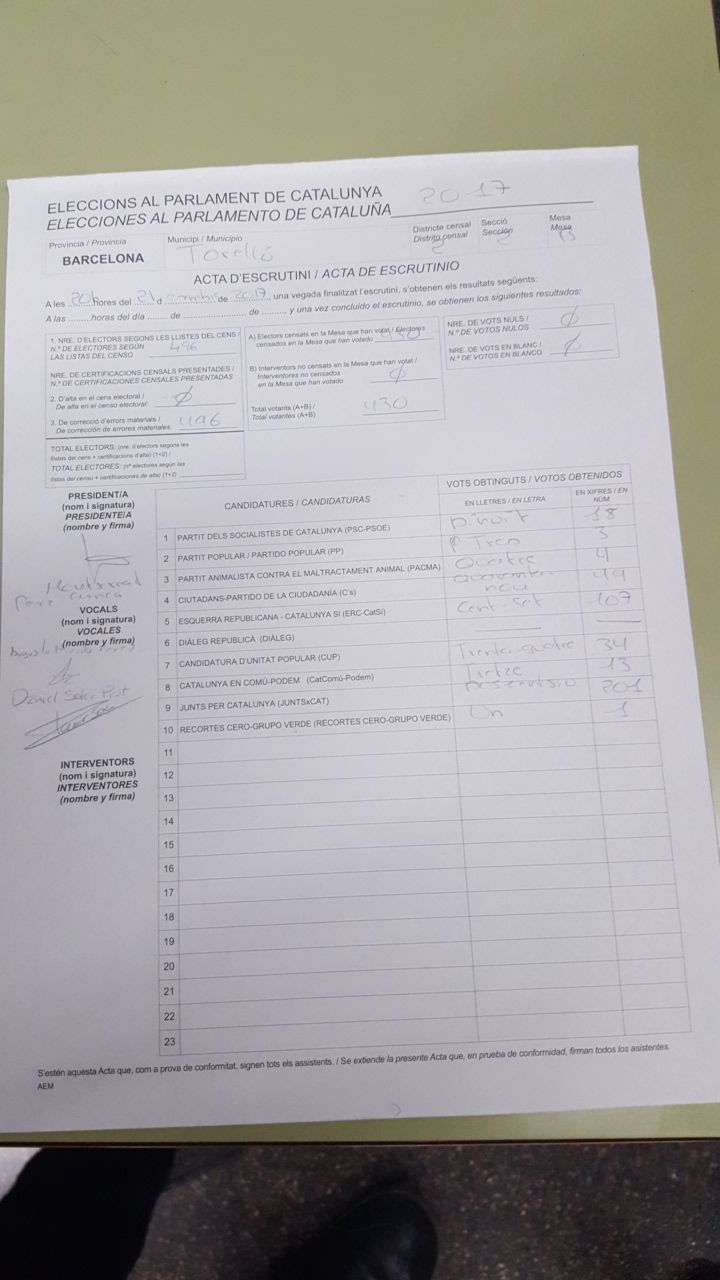 ELECCIONS AL PARLAMENT DE CATALUNYA
ELECCIONES AL PARLAMENTO DE CATALUÑA 2017
Provincia / Provincia
BARCELONA
Municipi / Municipio
Torelló
Districte censal
Distrito censal
2
Secció
Sección
2
Mesa
Mesa
B
ACTA D'ESCRUTINI / ACTA DE ESCRUTINIO
A les 20h hores del 21 d de 2017, una vegada finalitzat l'escrutini, s'obtenen els resultats següents:
A las .........horas del día ....... de ............................ de ......... y una vez concluido el escrutinio, se obtienen los siguientes resultados:
1. NRE. D'ELECTORS SEGONS LES LLISTES DEL CENS /
N.º DE ELECTORES SEGÚN
LAS LISTAS DEL CENSO 496
NRE. DE CERTIFICACIONS CENSALS PRESENTADES /
N.º DE CERTIFICACIONES CENSALES PRESENTADAS
2. D'alta en el cens electoral /
De alta en el censo electoral: Ø
3. De correcció d'errors materials /
De corrección de errores materiales: 496
TOTAL ELECTORS: (nre. d'electors segons les
llistes del cens + certificacions d'alta) (1+2) /
TOTAL ELECTORES: (nº electores según las
listas del censo + certificaciones de alta) (1+2)
A) Electors censats en la Mesa que han votat / Electores
censados en la Mesa que han votado 430
B) Interventors no censats en la Mesa que han votat /
Interventores no censados
en la Mesa que han votado Ø
Total votants (A+B) /
Total votantes (A+B) 430
NRE. DE VOTS NULS /
N.º DE VOTOS NULOS Ø
NRE. DE VOTS EN BLANC /
N.º DE VOTOS EN BLANCO Ø
PRESIDENT/A
(nom i signatura)
PRESIDENTE/A
(nombre y firma)
Montserrat
VOCALS
(nom i signatura)
VOCALES
(nombre y firma)
Daniel Soler Prat
INTERVENTORS
(nom i signatura)
INTERVENTORES
(nombre y firma)
CANDIDATURES / CANDIDATURAS
VOTS OBTINGUTS / VOTOS OBTENIDOS
EN LLETRES / EN LETRA
EN XIFRES / EN NÚM.
1 PARTIT DELS SOCIALISTES DE CATALUNYA (PSC-PSOE) Divuit 18
2 PARTIT POPULAR / PARTIDO POPULAR (PP) Tres 3
3 PARTIT ANIMALISTA CONTRA EL MALTRACTAMENT ANIMAL (PACMA) Quatre 4
4 CIUTADANS-PARTIDO DE LA CIUDADANÍA (C's) Quaranta-nou 49
5 ESQUERRA REPUBLICANA - CATALUNYA SÍ (ERC-CatSí) Cent-set 107
6 DIÀLEG REPUBLICÀ (DIÀLEG)
7 CANDIDATURA D'UNITAT POPULAR (CUP) Trenta-quatre 34
8 CATALUNYA EN COMÚ-PODEM (CatComú-Podem) Tretze 13
9 JUNTS PER CATALUNYA (JUNTSxCAT) 201
10 RECORTES CERO-GRUPO VERDE (RECORTES CERO-GRUPO VERDE) Un 1
11
12
13
14
15
16
17
18
19
20
21
22
23
S'estén aquesta Acta que, com a prova de conformitat, signen tots els assistents. / Se extiende la presente Acta que, en prueba de conformidad, firman todos los asistentes.
AEM